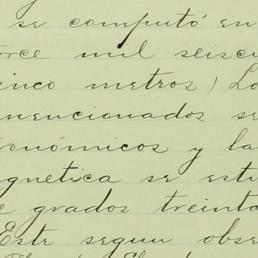 se computó en
orce mil seisc
inco metros) Lo
mencionados se
onómicos y la
gnetica se estu
e grados treinta
Este segun obse